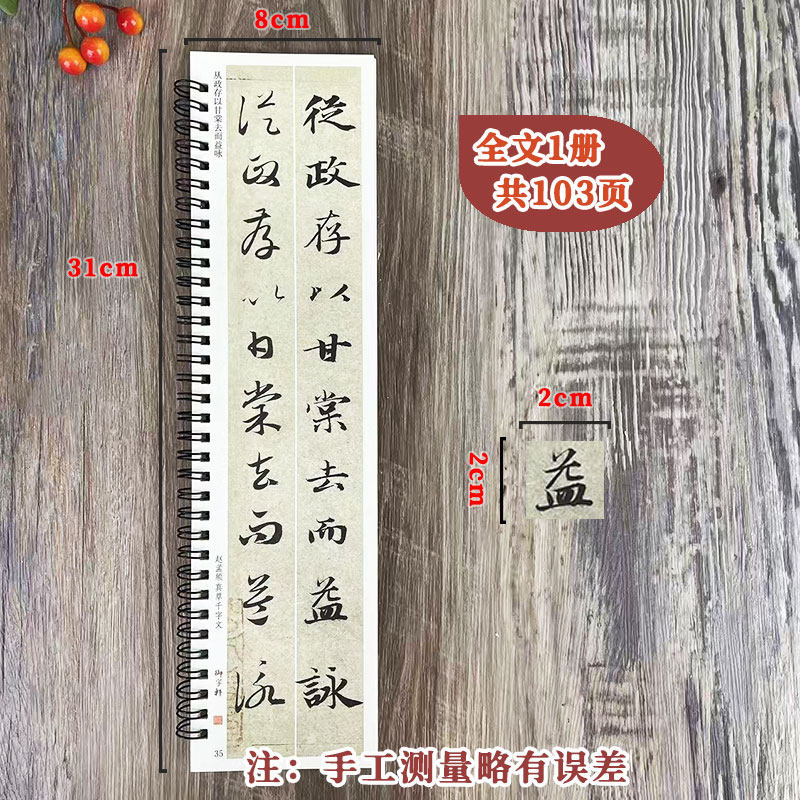 8cm
31cm
全文1册
共103页
从政存以甘棠去而益咏
從政存以甘棠去而益詠
從政存以甘棠去而益詠
赵孟頫 真草千字文
御字轩
35
2cm
2cm
益
注：手工测量略有误差